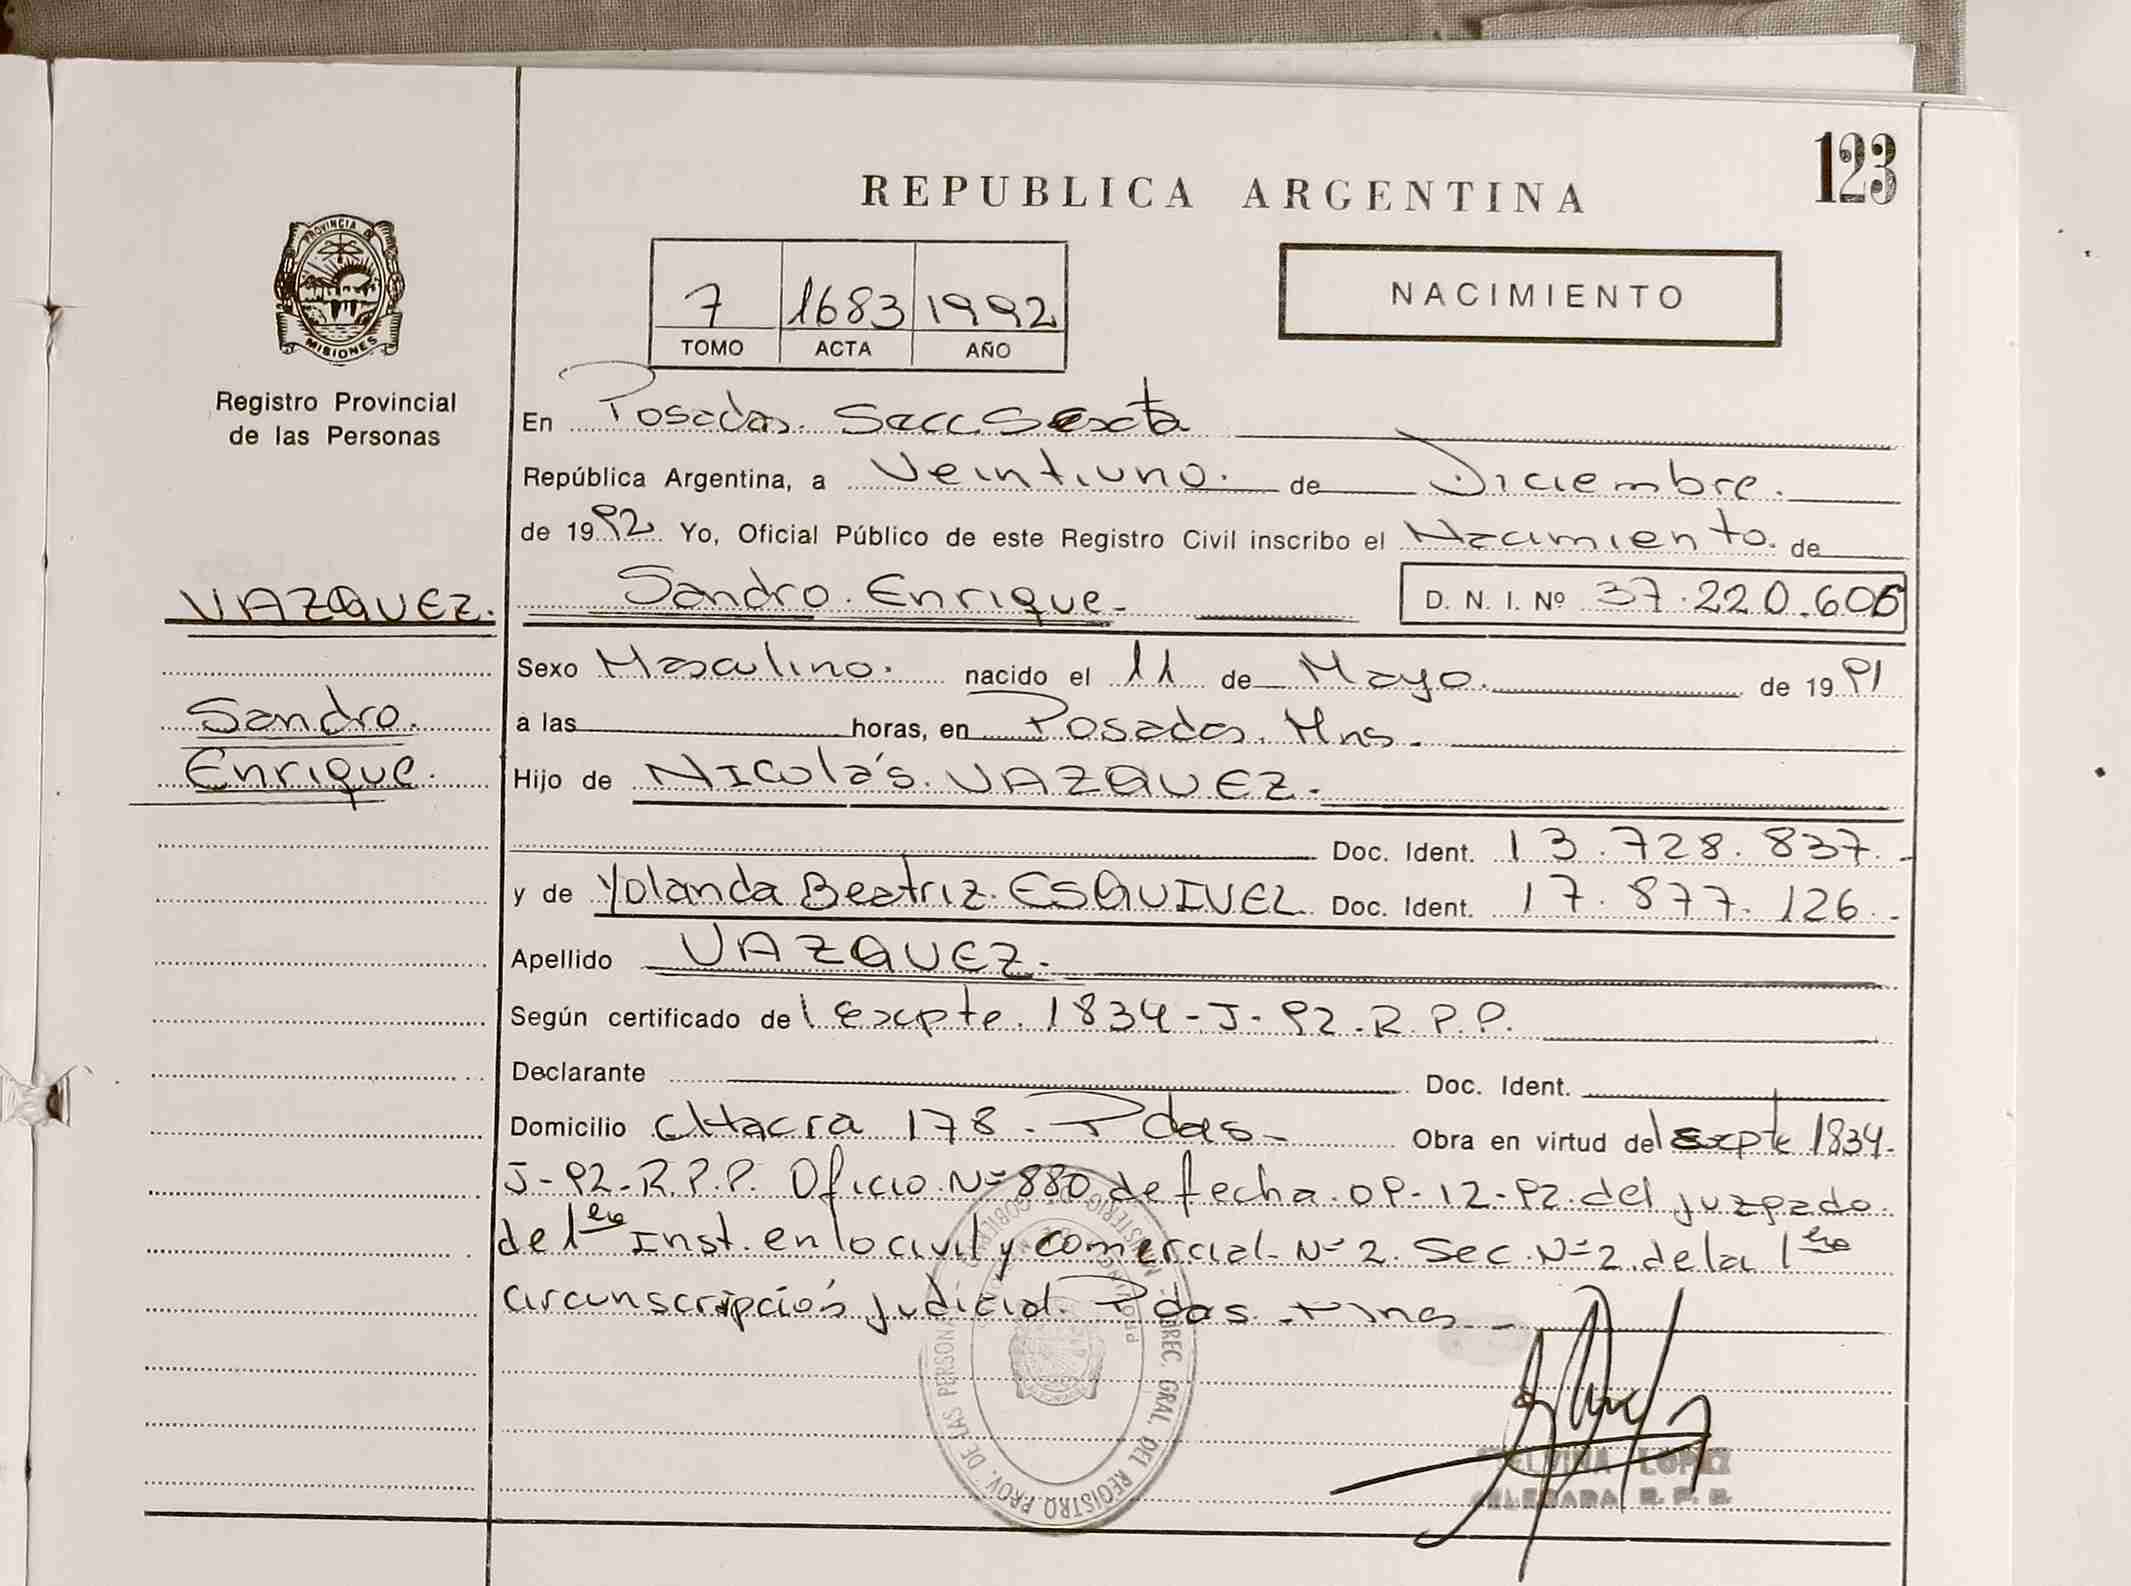 123
REPUBLICA ARGENTINA
PROVINCIA DE MISIONES
Registro Provincial
de las Personas
7 1683 1992
TOMO ACTA AÑO
NACIMIENTO
En Posadas. Secc. Sexta
República Argentina, a Veintiuno. de Diciembre.
de 1992 Yo, Oficial Público de este Registro Civil inscribo el Nacimiento. de
VAZQUEZ.
Sandro. Enrique. D. N. I. Nº 37.220.606
Sexo Masculino. nacido el 11 de Mayo. de 1991
Sandro.
a las horas, en Posadas. Mns.
Enrique.
Hijo de Nicolás. VAZQUEZ.
Doc. Ident. 13.728.837.
y de Yolanda Beatriz. ESQUIVEL Doc. Ident. 17.877.126.
Apellido VAZQUEZ.
Según certificado del Expte. 1834-J-92.R.P.P.
Declarante Doc. Ident.
Domicilio CHacra 178. Pdas- Obra en virtud del expte 1834-
J-92-R.P.P. Oficio Nº 880 de fecha 09-12-92. del juzgado
de 1era Inst. en lo civil y comercial Nº 2. Sec. Nº 2. de la 1era
circunscripción judicial. Pdas. Mnes
LOPEZ